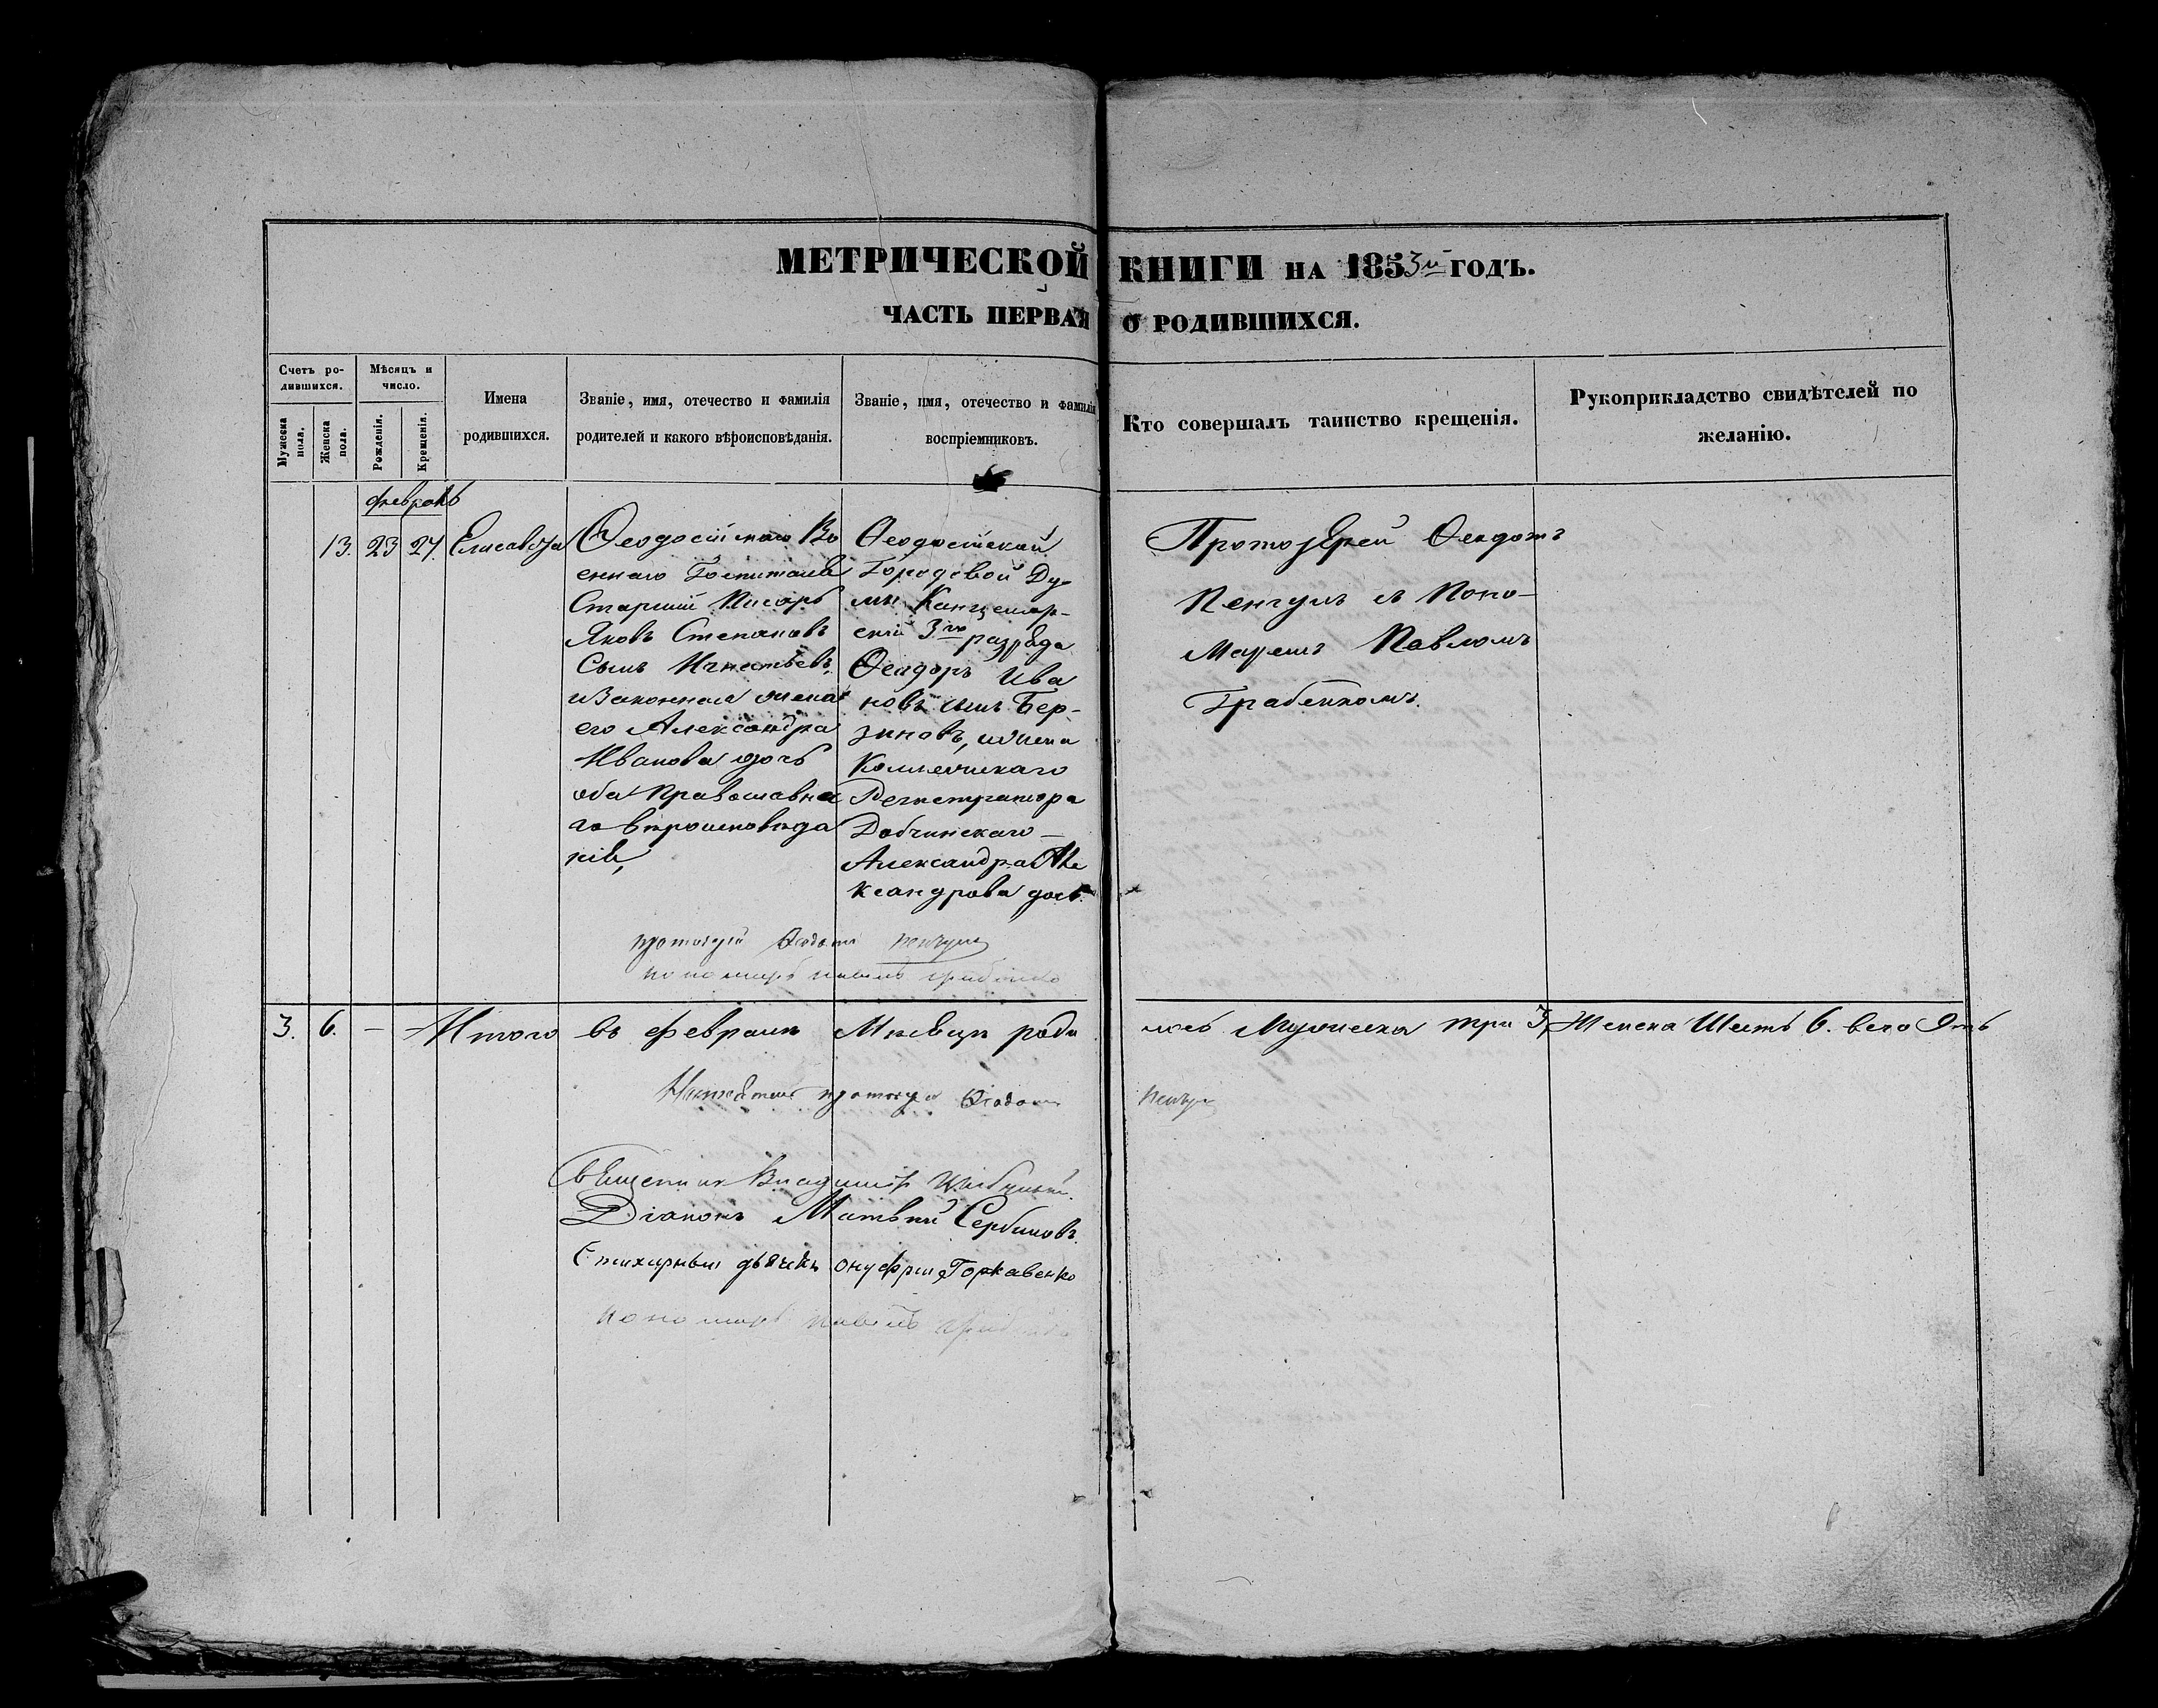 МЕТРИЧЕСКОЙ КНИГИ НА 1853й ГОДЪ.
ЧАСТЬ ПЕРВАЯ О РОДИВШИХСЯ.
Счетъ ро-
дившихся.
Мужеска
пола.
Женска
пола.
Мѣсяцъ и
число.
Рожденія.
Крещенія.
Имена
родившихся.
Званіе, имя, отечество и фамилія
родителей и какого вѣроисповѣданія.
Званіе, имя, отечество и фамилія
воспріемниковъ.
Кто совершалъ таинство крещенія.
Рукоприкладство свидѣтелей по
желанію.
февраль
13. 23 27. Елисавета
Ѳеодосійскаго Во
еннаго Госпиталя
Старшій Писарь
Яковъ Степановъ
Сынъ Игнатьевъ,
и Законная жена
его Александра
Иванова дочь
оба Православна
го вѣроисповѣда
нія,
Ѳеодосійской
Городовой Ду-
мы Канцеляр-
скій 3го разряда
Ѳеодоръ Ива
новъ сынъ Бер-
зиновъ, и жена
Коллежскаго
Регистратора
Добчинскаго —
Александра Але
ксандрова дочь.
Протоіерей Ѳеодотъ
съ Поно-
маремъ Павломъ
Грабенкомъ.
протоіерей Ѳеодотъ
пономарь Павелъ
3. 6. — Итого въ февралѣ Мѣсяцѣ роди
лось Мужеска три 3, Женска Шесть 6. всего 9ть
протоіерей Ѳеодотъ
Священникъ Владиміръ
Діаконъ Матвѣй Сербиновъ.
Стихарный дьячекъ Онуфрий Горкавенко
пономарь Павелъ